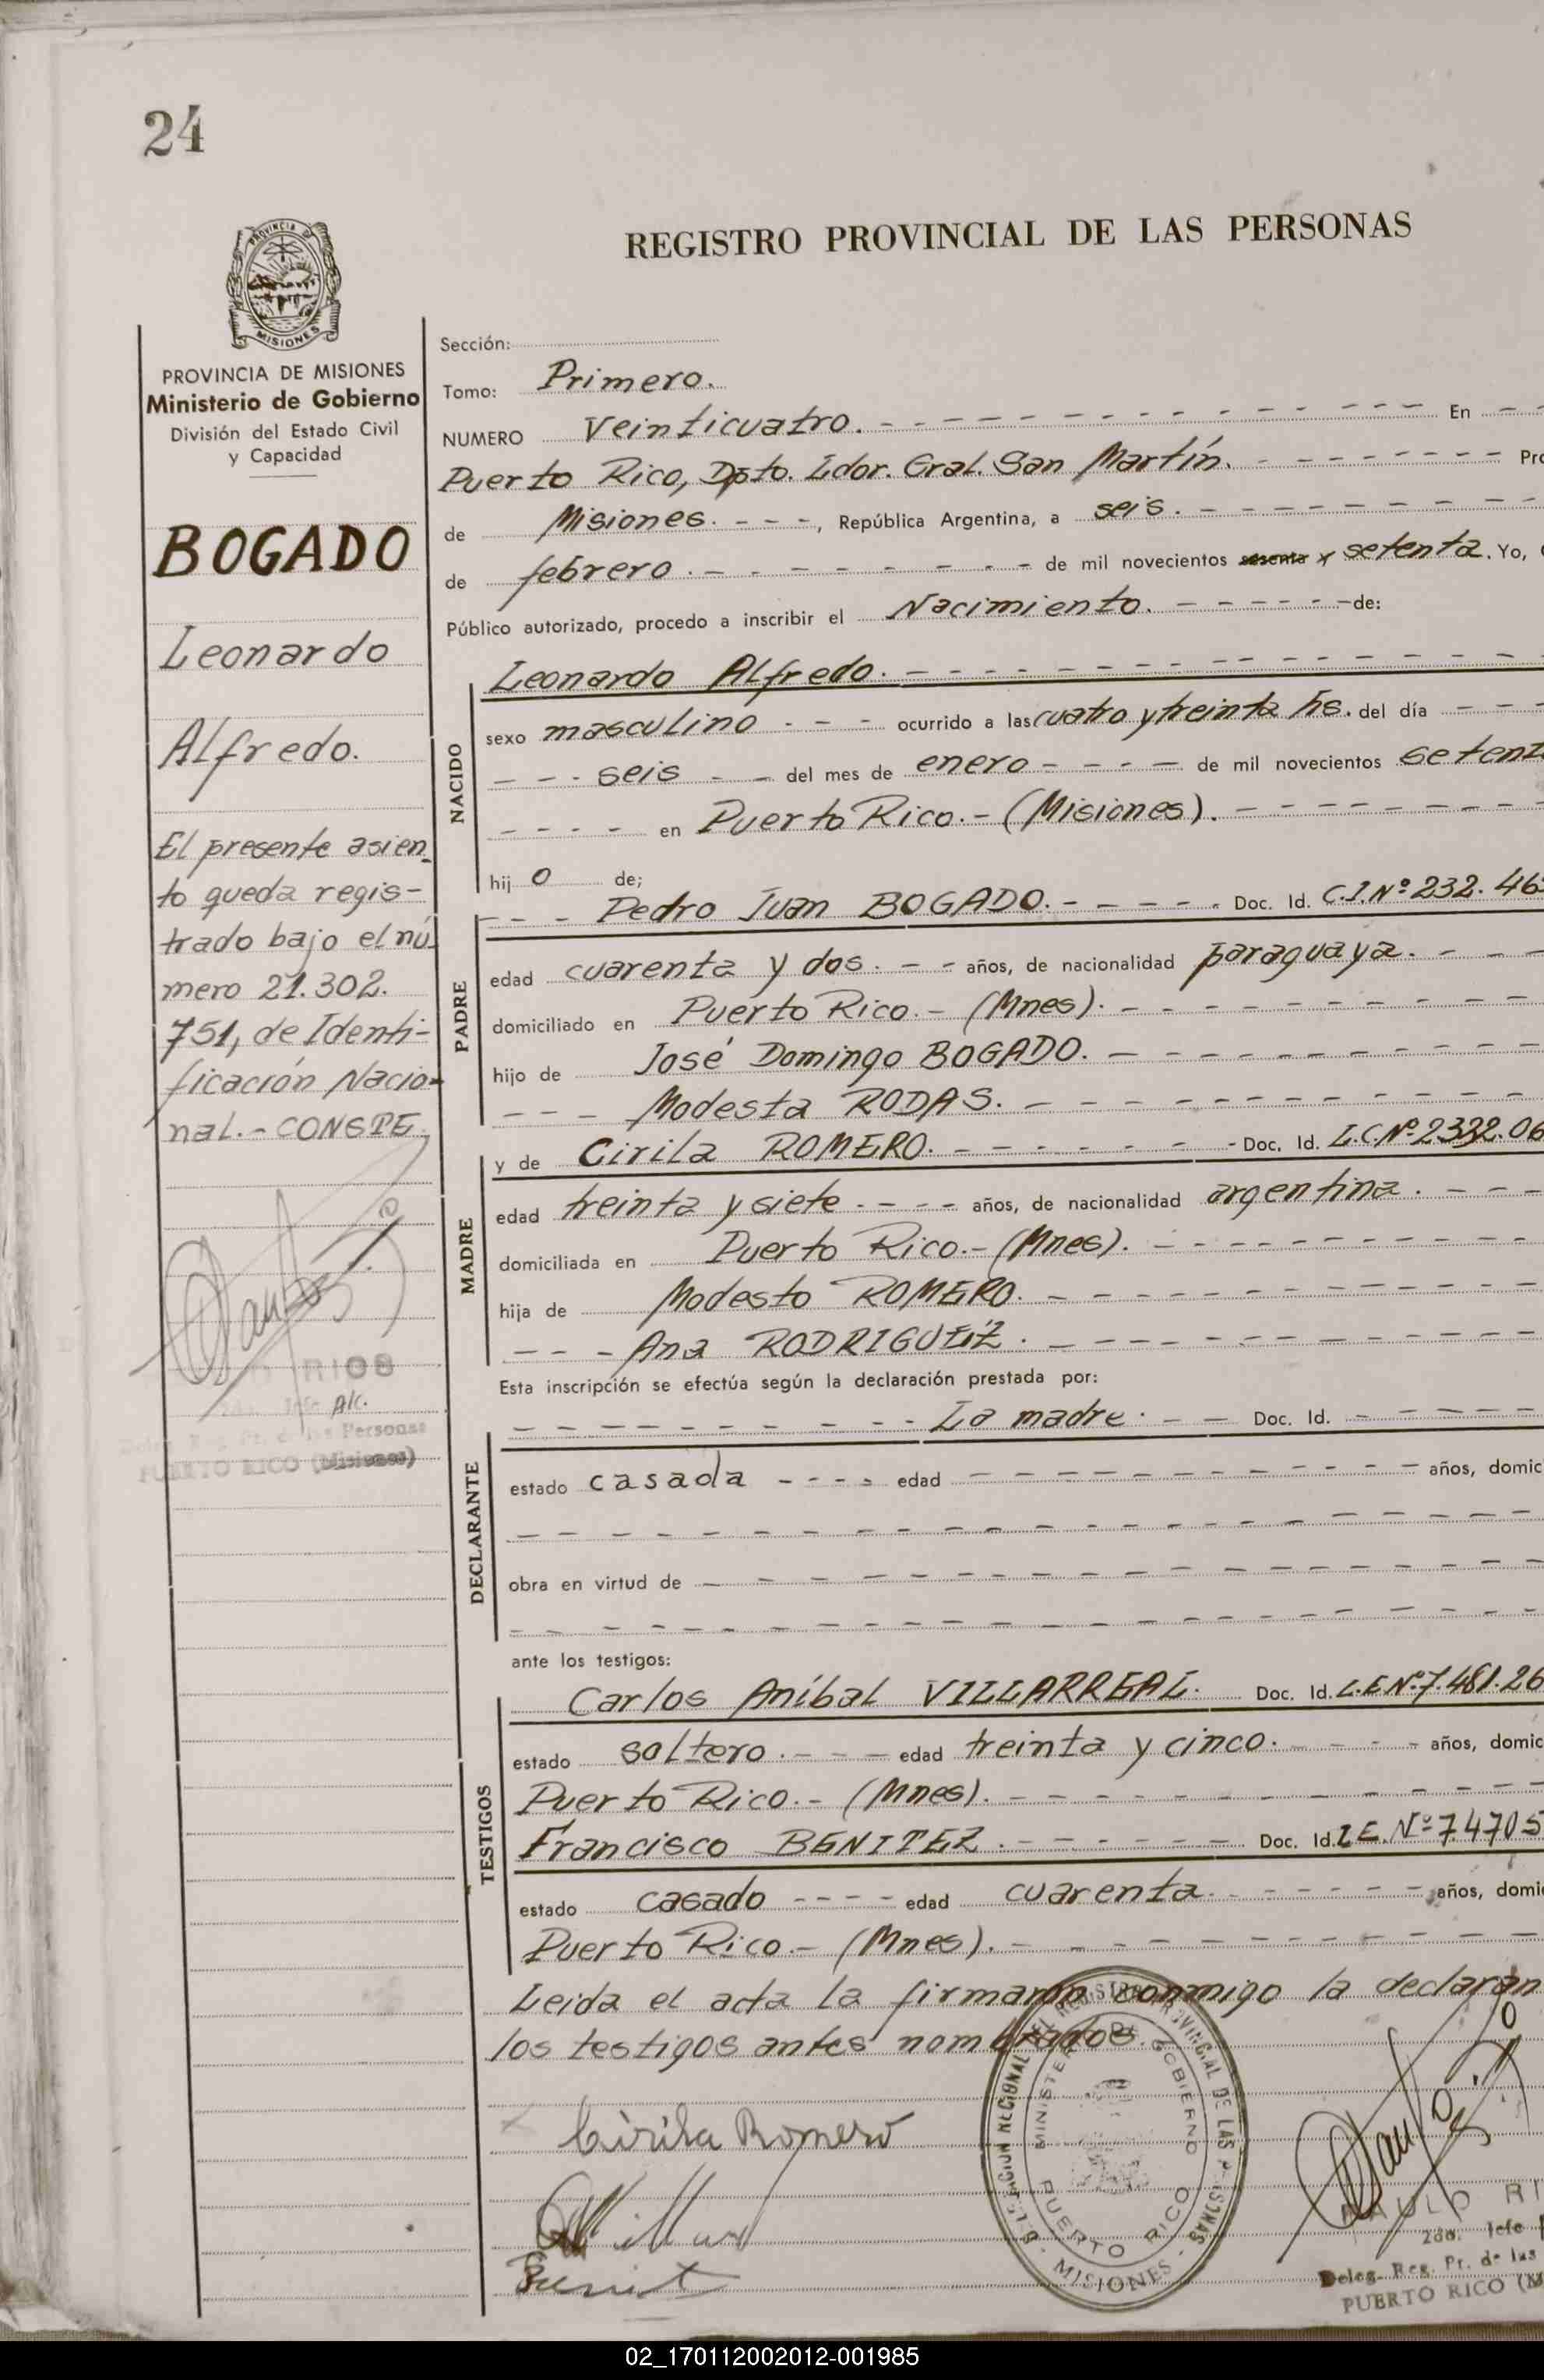 24
REGISTRO PROVINCIAL DE LAS PERSONAS
PROVINCIA DE
MISIONES
PROVINCIA DE MISIONES
Ministerio de Gobierno
División del Estado Civil
y Capacidad
BOGADO
Leonardo
Alfredo.
El presente asien
to queda regis-
trado bajo el nú
mero 21.302.
751, de Identi-
ficación Nacio-
nal.- CONSTE
RIOS
Jefe A/c.
Personas
PUERTO RICO (Misiones)
Sección:
Tomo: Primero.
NUMERO Veinticuatro. En
Puerto Rico, Dpto. Ldor. Gral. San Martín. Pro
de Misiones. - - -, República Argentina, a seis.
de febrero. de mil novecientos sesenta y setenta. Yo,
Público autorizado, procedo a inscribir el Nacimiento. de:
NACIDO
Leonardo Alfredo.
sexo masculino - - - ocurrido a las cuatro y treinta hs. del día
- - - seis - - del mes de enero - - - - de mil novecientos setent
en Puerto Rico.- (Misiones).
hij o de;
PADRE
- - - Pedro Juan BOGADO. - - - - - Doc. Id. C.I.Nº 232.46
edad cuarenta y dos. - - años, de nacionalidad paraguaya.
domiciliado en Puerto Rico.- (Mnes).
hijo de José Domingo BOGADO.
- - - Modesta RODAS.
y de Cirila ROMERO. Doc. Id. L.C.Nº 2332.06
MADRE
edad treinta y siete - - - - años, de nacionalidad argentina.
domiciliada en Puerto Rico.- (Mnes).
hija de Modesto ROMERO.
- - - Ana RODRIGUEZ.
Esta inscripción se efectúa según la declaración prestada por:
DECLARANTE
La madre. - - Doc. Id.
estado casada - - - - edad años, domic
obra en virtud de
ante los testigos:
TESTIGOS
Carlos Aníbal VILLARREAL. Doc. Id. L.E.Nº 7.481.26
estado soltero. - - - edad treinta y cinco. años, domic
Puerto Rico.- (Mnes).
Francisco BENITEZ. Doc. Id. L.E.Nº 74705
estado casado - - - - edad cuarenta. años, domi
Puerto Rico.- (Mnes).
Leida el acta la firmaron conmigo la declaran
los testigos antes nombrados.
Cirila Romero
DELEGACION REGIONAL DEL REGISTRO PROVINCIAL DE LAS PERSONAS
MINISTERIO DE GOBIERNO
PUERTO RICO
- MISIONES -
RAULO RI
2do. Jefe
Deleg. Reg. Pr. de las
PUERTO RICO (M
02_170112002012-001985